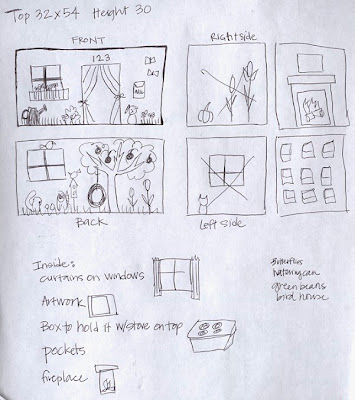 Top 32x54 Height 30
FRONT
123
Right side
Back
Left Side
Inside:
curtains on windows
Artwork
Box to hold it w/stove on top
pockets
fireplace
Butterflies
watering can
green beans
bird house